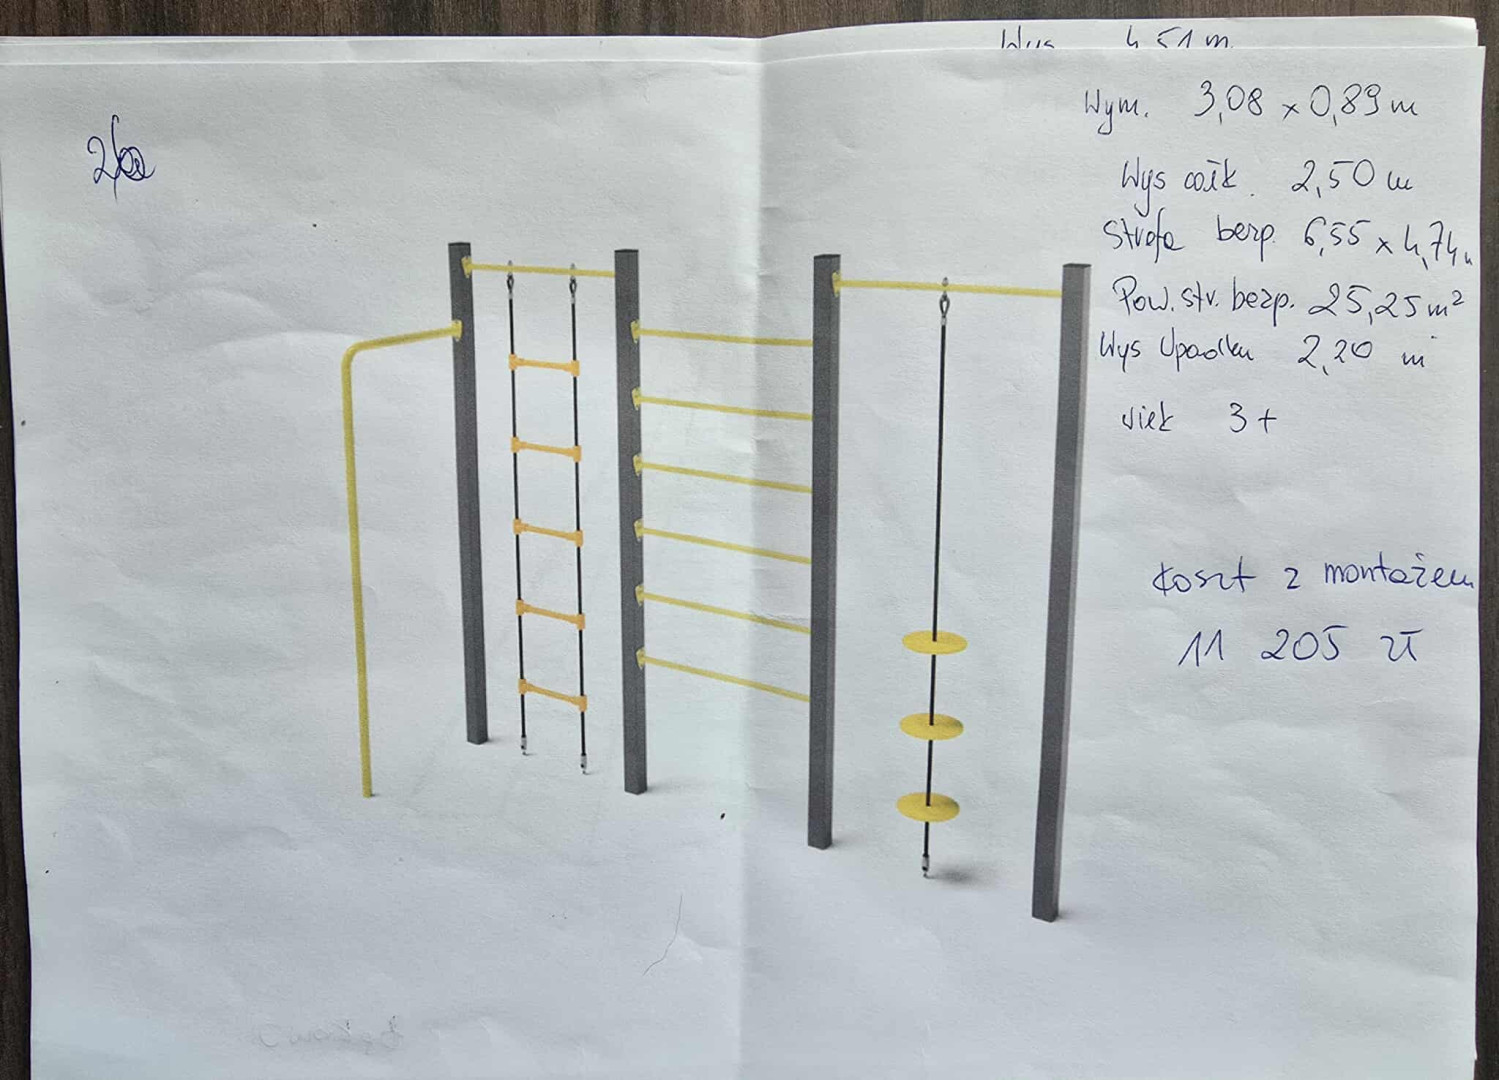 Wys 4,51 m
Wym. 3,08 x 0,89 m
Wys całk. 2,50 m
Strefa bezp. 6,55 x 4,74
Pow. str. bezp. 25,25 m²
Wys Upadku 2,20 m
wiek 3+
koszt z montażem
11 205 zł